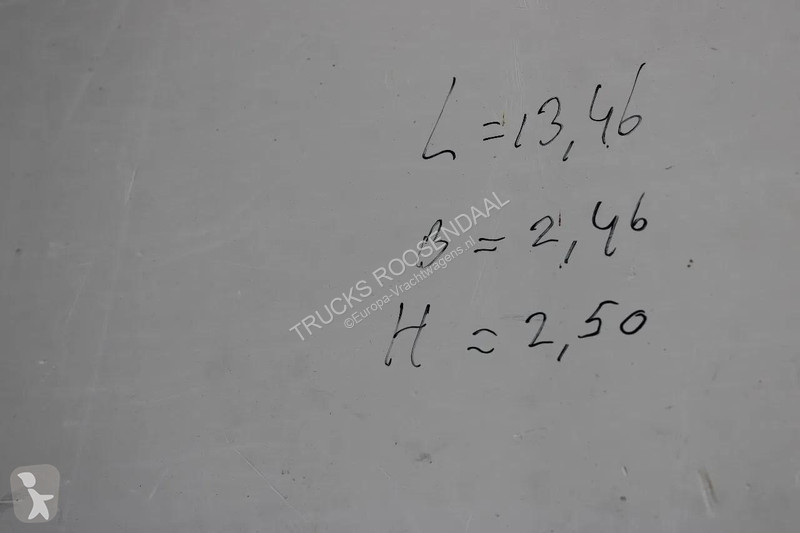 L = 13,46
B = 2,46
H = 2,50
TRUCKS ROOSENDAAL
©Europa-Vrachtwagens.nl